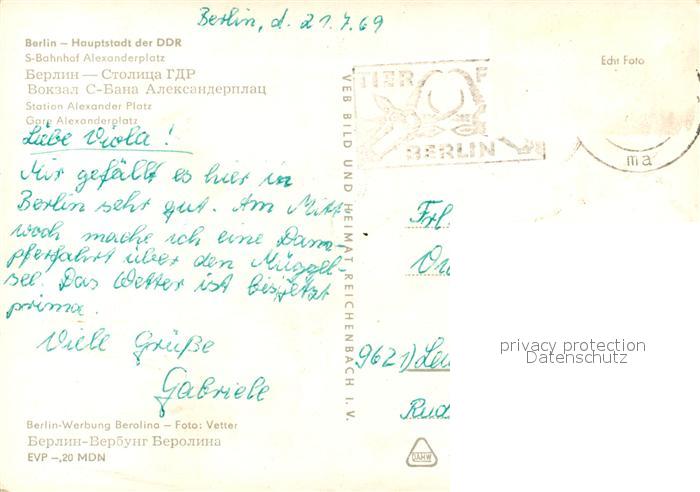 Berlin, d. 21.7.69
Berlin – Hauptstadt der DDR
S-Bahnhof Alexanderplatz
Берлин — Столица ГДР
Вокзал С-Бана Александерплац
Station Alexander Platz
Gare Alexanderplatz
Liebe Viola!
Mir gefällt es hier in
Berlin sehr gut. Am Mitt-
woch mache ich eine Dam-
pferfahrt über den Müggel-
see. Das Wetter ist bis jetzt
prima.
Viele Grüße
Gabriele
Berlin-Werbung Berolina – Foto: Vetter
Берлин-Вербунг Беролина
EVP –,20 MDN
VEB BILD UND HEIMAT REICHENBACH I. V.
TIER P
BERLIN
Echt Foto
ma
Frl.
9621)
privacy protection
Datenschutz
DAHW